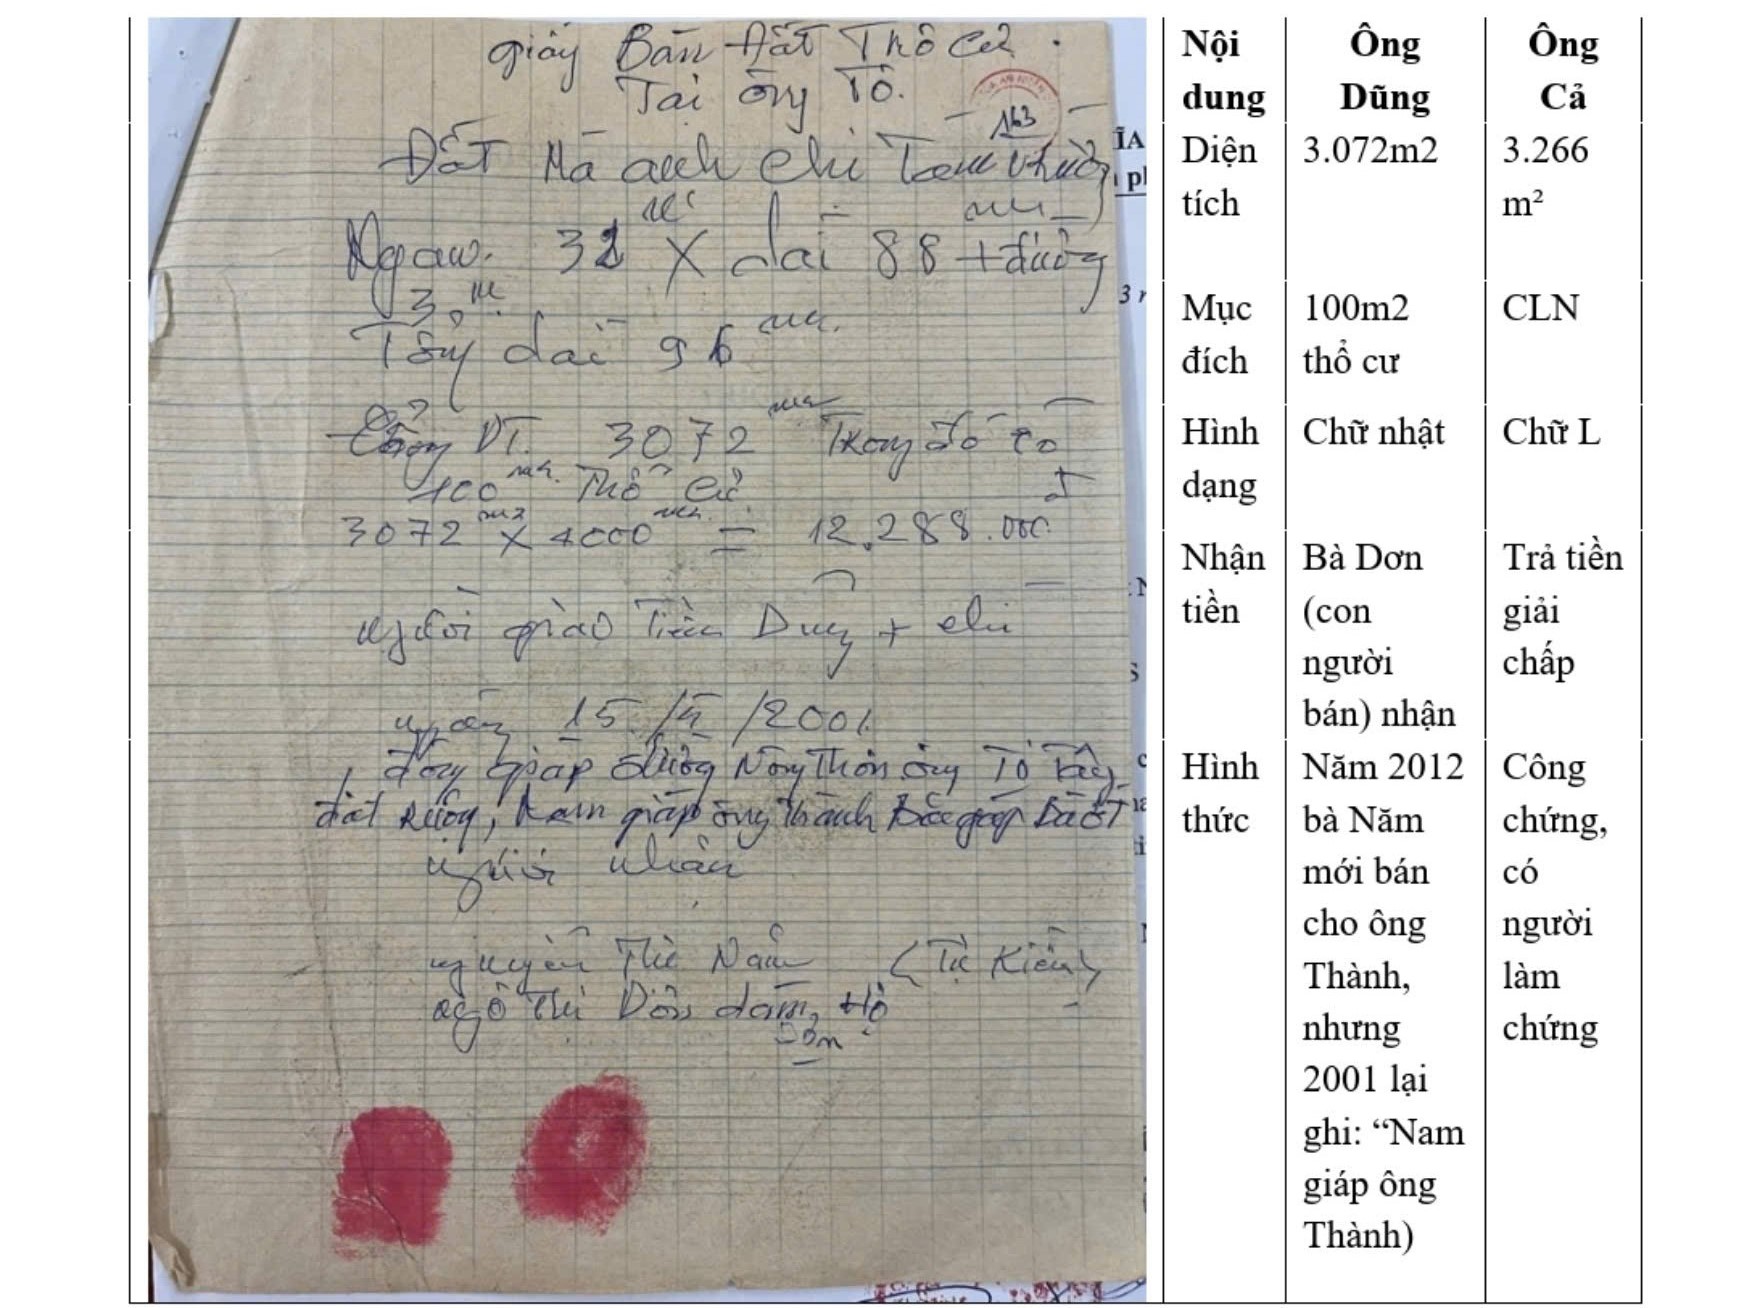 giấy Bán Đất Thổ Cư.
Tại ông Tô.
163
Đất Mà anh chi
Ngan. 32 m X dai 88 + đường
3m
Tây dai 96
Cổng DT. 3072 m2 Trong đó có
100 m2 Thổ Cư
3072 m2 X 4000 = 12.288.000
người giao Tiền Dung + chi
ngày 15 / /2001.
đông giáp đường Nông Thôn ông Tô Tây
đất ruộng, Nam giáp ông Thành Bắc giáp Bà ót
người nhân
nguyễn Thị Năm (Tư Kiến)
ngô Thi Dơn
Dơn
Nội dung
Ông Dũng
Ông Cả
Diện tích
3.072m2
3.266 m²
Mục đích
100m2 thổ cư
CLN
Hình dạng
Chữ nhật
Chữ L
Nhận tiền
Bà Dơn (con người bán) nhận
Trả tiền giải chấp
Hình thức
Năm 2012 bà Năm mới bán cho ông Thành, nhưng 2001 lại ghi: “Nam giáp ông Thành)
Công chứng, có người làm chứng